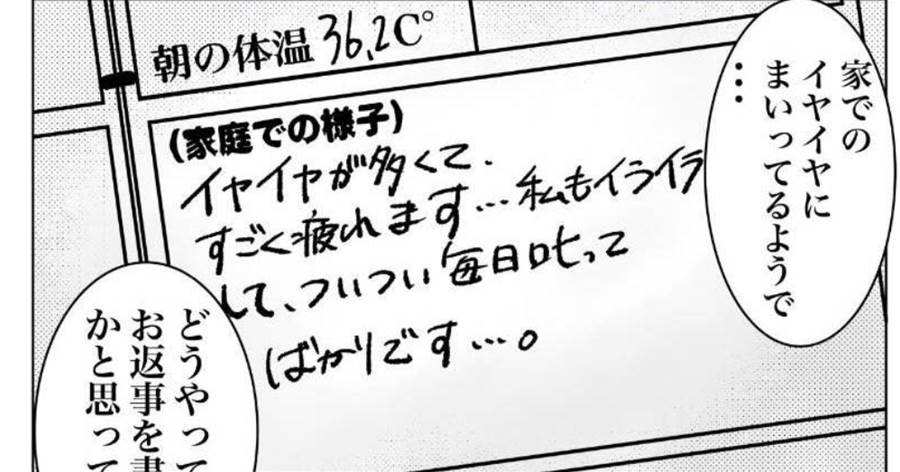 家での
イヤイヤに
まいってるようで
…
朝の体温 36,2C°
(家庭での様子)
イヤイヤが多くて、
すごく疲れます…私もイライラ
して、ついつい毎日叱って
ばかりです…。
どうやって
お返事を書
かと思って